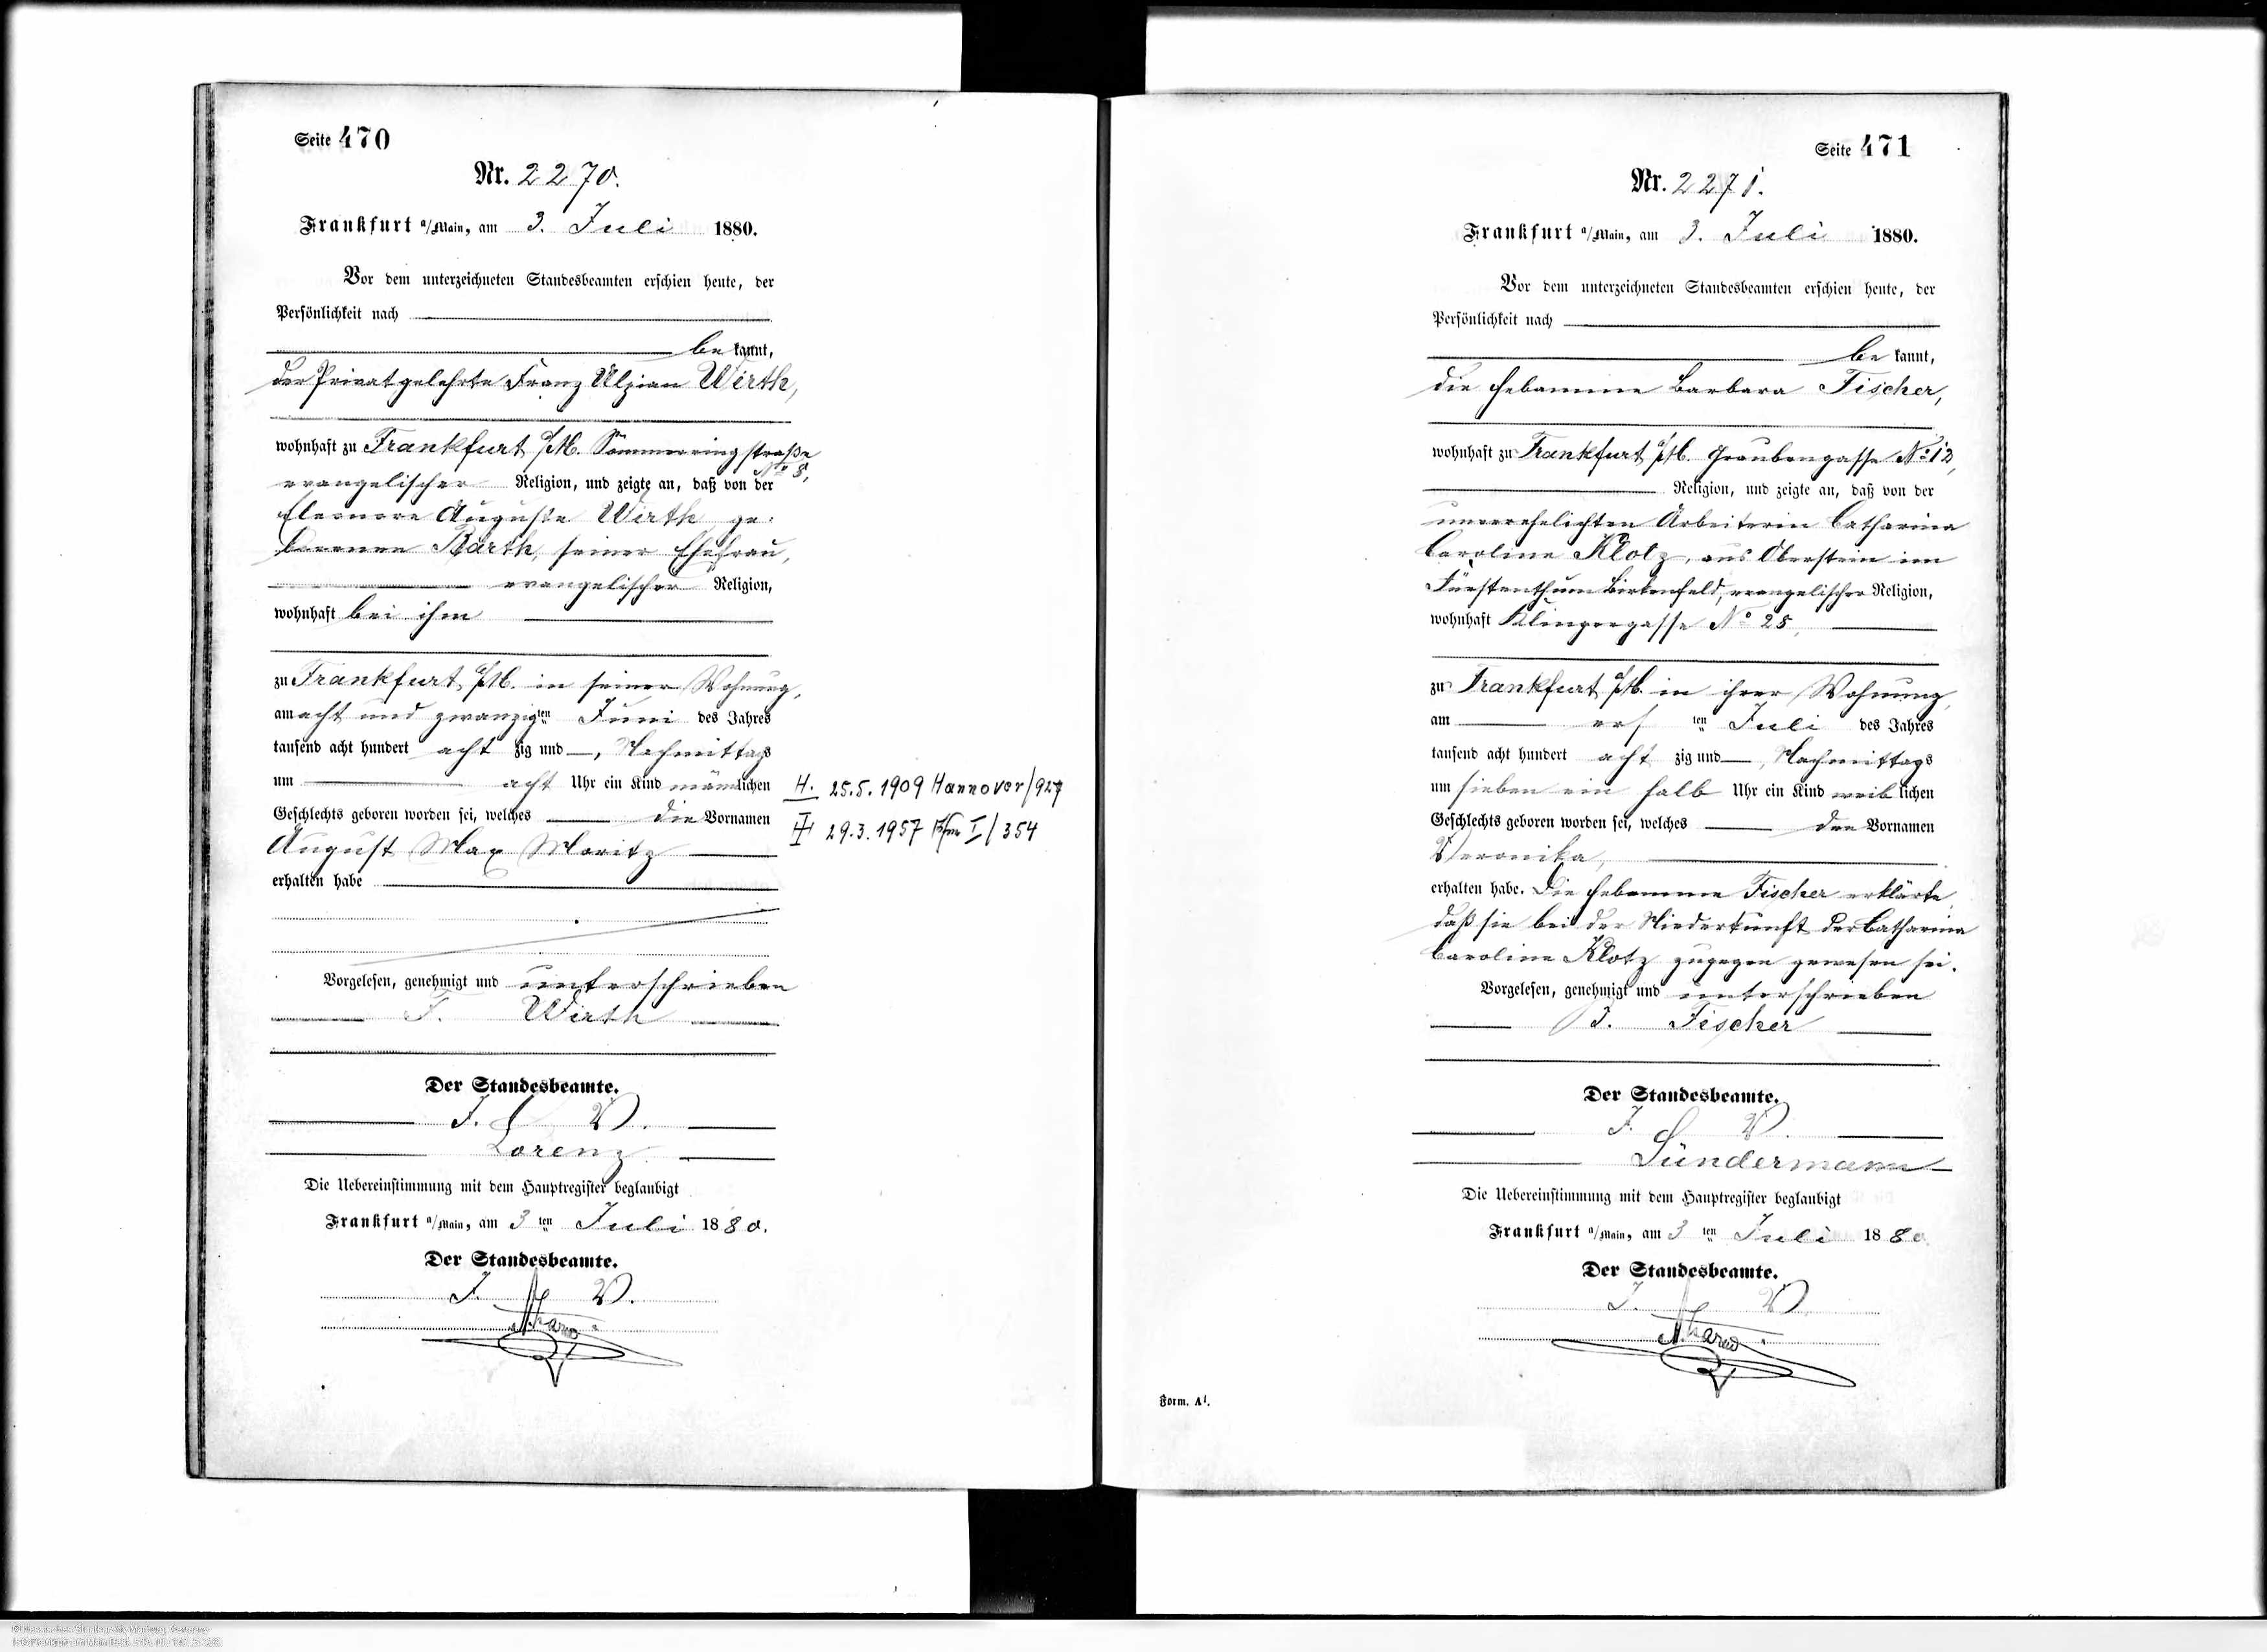 Seite 470
Nr. 2270.
Frankfurt a/Main, am 3. Juli 1880.
Vor dem unterzeichneten Standesbeamten erschien heute, der
Persönlichkeit nach
be kannt,
der Privatgelehrte Franz Ulpian Wirth,
wohnhaft zu Frankfurt a/M. Sömmerringstraße
No 8,
evangelischer Religion, und zeigte an, daß von der
Eleonore Auguste Wirth, ge-
borenen Barth, seiner Ehefrau,
evangelischer Religion,
wohnhaft bei ihm
zu Frankfurt a/M. in seiner Wohnung,
am acht und zwanzigten Juni des Jahres
tausend acht hundert acht zig und —, Nachmittags
um acht Uhr ein Kind männlichen
Geschlechts geboren worden sei, welches die Vornamen
August Max Moritz
erhalten habe
H. 25.5.1909 Hannover/927
29.3.1957 Ffm I/354
Vorgelesen, genehmigt und unterschrieben
F. Wirth
Der Standesbeamte.
J. V.
Lorenz
Die Uebereinstimmung mit dem Hauptregister beglaubigt
Frankfurt a/Main, am 3 ten Juli 1880.
Der Standesbeamte.
J. V.
Seite 471
Nr. 2271.
Frankfurt a/Main, am 3. Juli 1880.
Vor dem unterzeichneten Standesbeamten erschien heute, der
Persönlichkeit nach
be kannt,
die Hebamme Barbara Fischer,
wohnhaft zu Frankfurt a/M. Graubengasse No 12,
Religion, und zeigte an, daß von der
unverehelichten Arbeiterin Catharina
Caroline Klotz, aus Oberstein im
Fürstenthum Birkenfeld, evangelischer Religion,
wohnhaft Klingergasse No 25,
zu Frankfurt a/M. in ihrer Wohnung,
am ers ten Juli des Jahres
tausend acht hundert acht zig und —, Nachmittags
um sieben ein halb Uhr ein Kind weib lichen
Geschlechts geboren worden sei, welches den Vornamen
Veronika,
erhalten habe. Die Hebamme Fischer erklärte,
daß sie bei der Niederkunft der Catharina
Caroline Klotz zugegen gewesen sei.
Vorgelesen, genehmigt und unterschrieben
Fischer
Der Standesbeamte.
J. V.
Sündermann
Die Uebereinstimmung mit dem Hauptregister beglaubigt
Frankfurt a/Main, am 3 ten Juli 1880
Der Standesbeamte.
J. V.
Form. A¹.